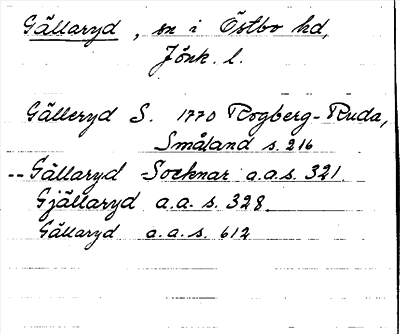 Gällaryd, sn i Östbo hd,
Jönk. l.
Gälleryd S. 1770 Rogberg-Ruda,
Småland s. 216
-- Gällaryd Socknar a.a.s. 321.
Gjällaryd a.a. s. 328.
Gällaryd a.a.s. 612